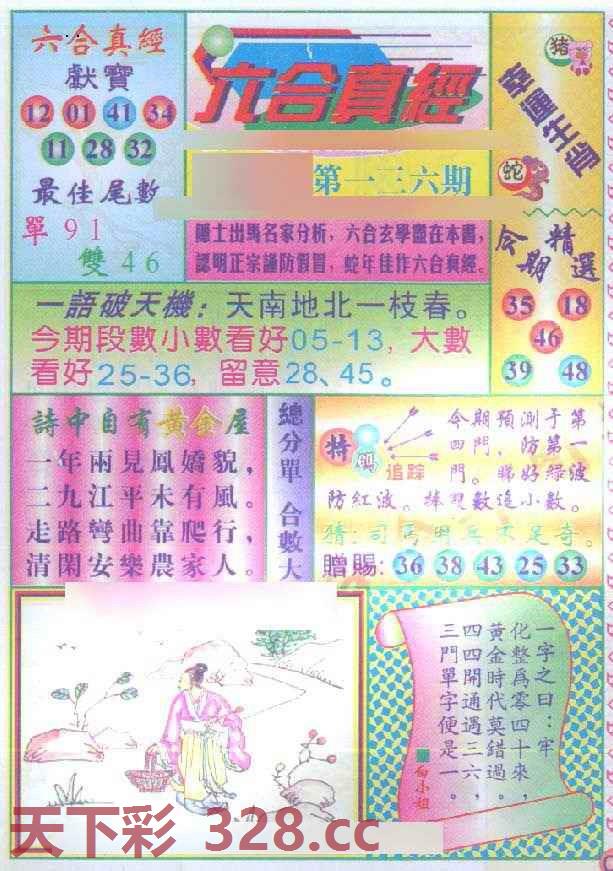 六合真經
獻寶
12 01 41 34
11 28 32
最佳尾數
單 91
雙 46
六合真經
第一三六期
隱士出馬名家分析，六合玄學盡在本書，
認明正宗謹防假冒，蛇年佳作六合真經。
豬
蛇
今期精選
35 18
46
39 48
一語破天機：天南地北一枝春。
今期段數小數看好05-13, 大數
看好25-36, 留意28、45。
詩中自有黃金屋
一年兩見鳳嬌貌，
二九江平未有風。
走路彎曲靠爬行，
清閑安樂農家人。
總分單 合數大
特碼
追踪
今期預測于第
四門，防第一
門。睇好绿波
防紅波。 數追小數。
猜：司馬 兵不足奇。
贈賜: 36 38 43 25 33
一字之曰：牢
化整為零四十來，
黃金時代莫錯過。
四四開通遇三六，
三門單字便是一。
白小姐
天下彩 328.cc